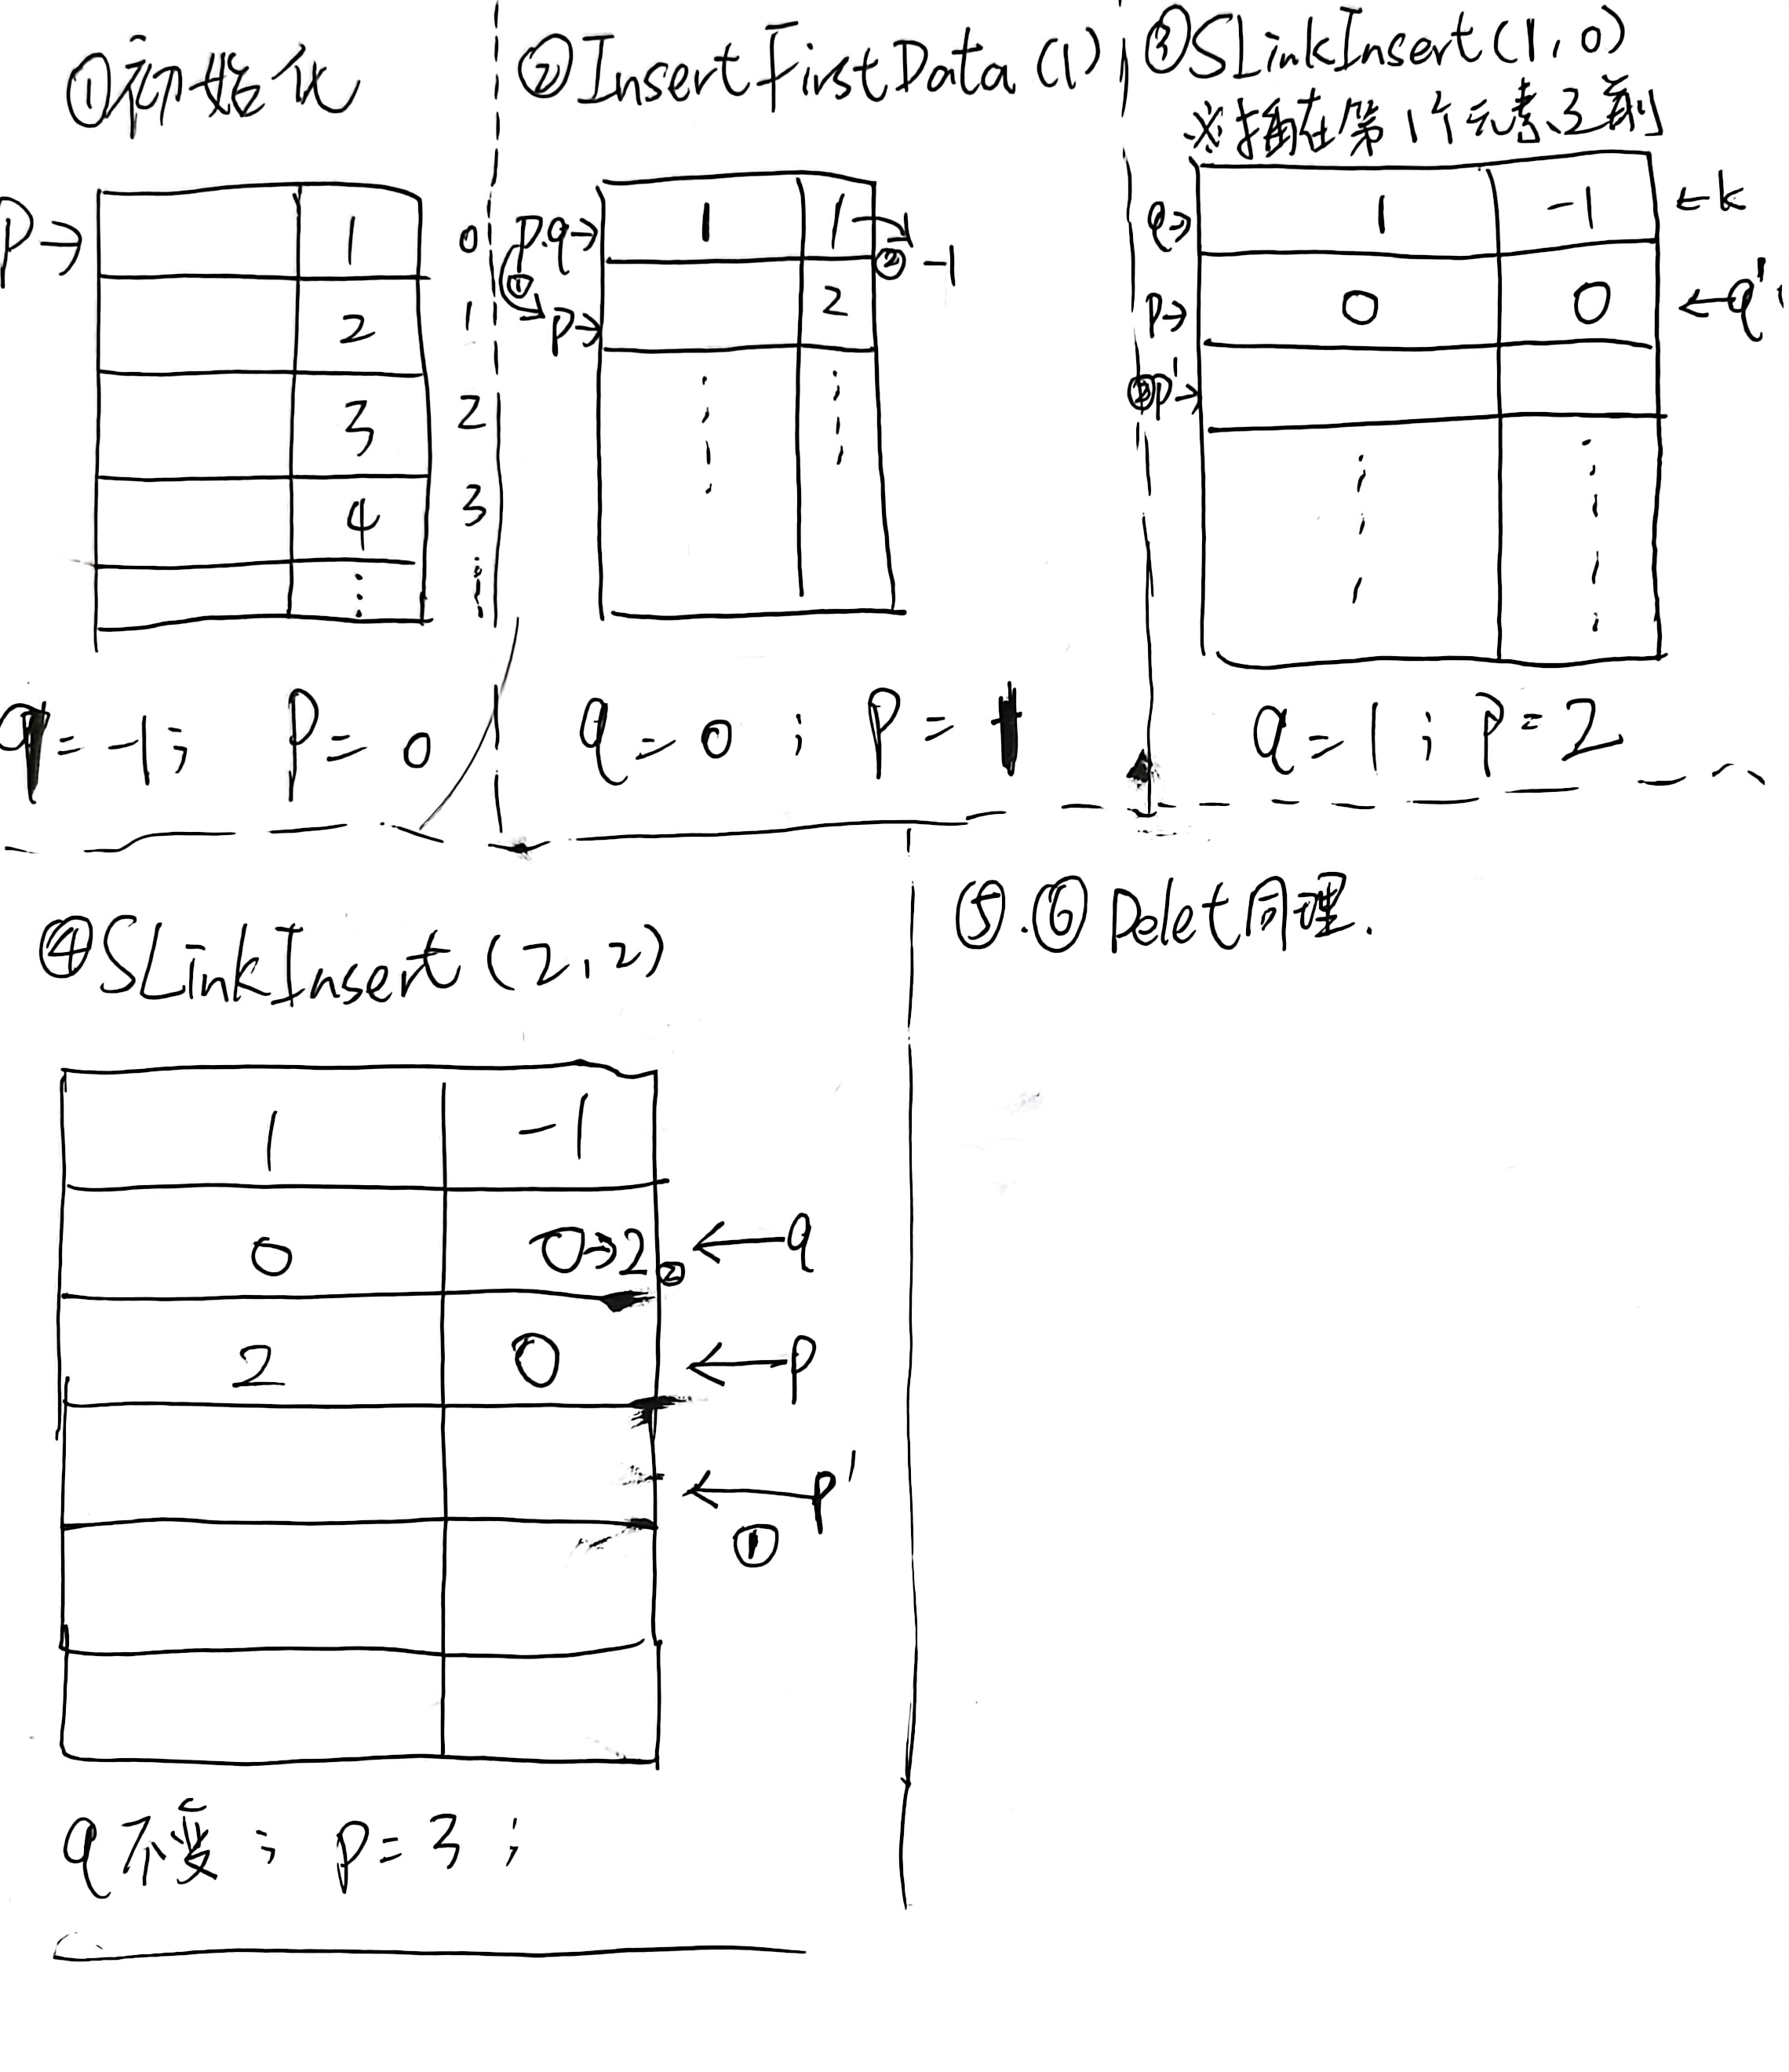 ①初始化
P→
1
0
2
1
3
2
4
3
q=-1; P=0
②InsertFirstData(1)
p.q→
1
1
② -1
①
p→
2
q=0; P=1
③SLinkInsert(1,0)
※插在第1个元素之前
q→
1
-1
←k
p→
0
0
←q'
p'→
q=1; P=2
④SLinkInsert(2,2)
1
-1
0
0→2 ②
←q
2
0
←p
←p'
①
q不变; p=3;
⑤.⑥Delet同理.